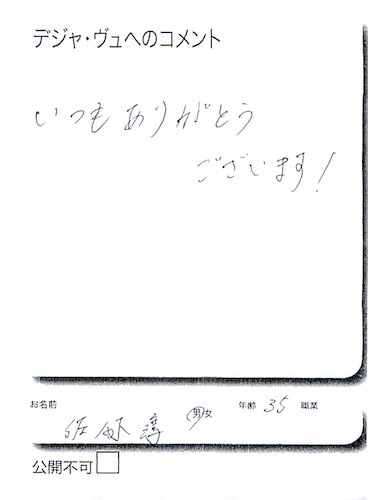 デジャ・ヴュへのコメント
いつもありがとう
ございます!
お名前 佐 淳 男女 年齢 35 職業
公開不可